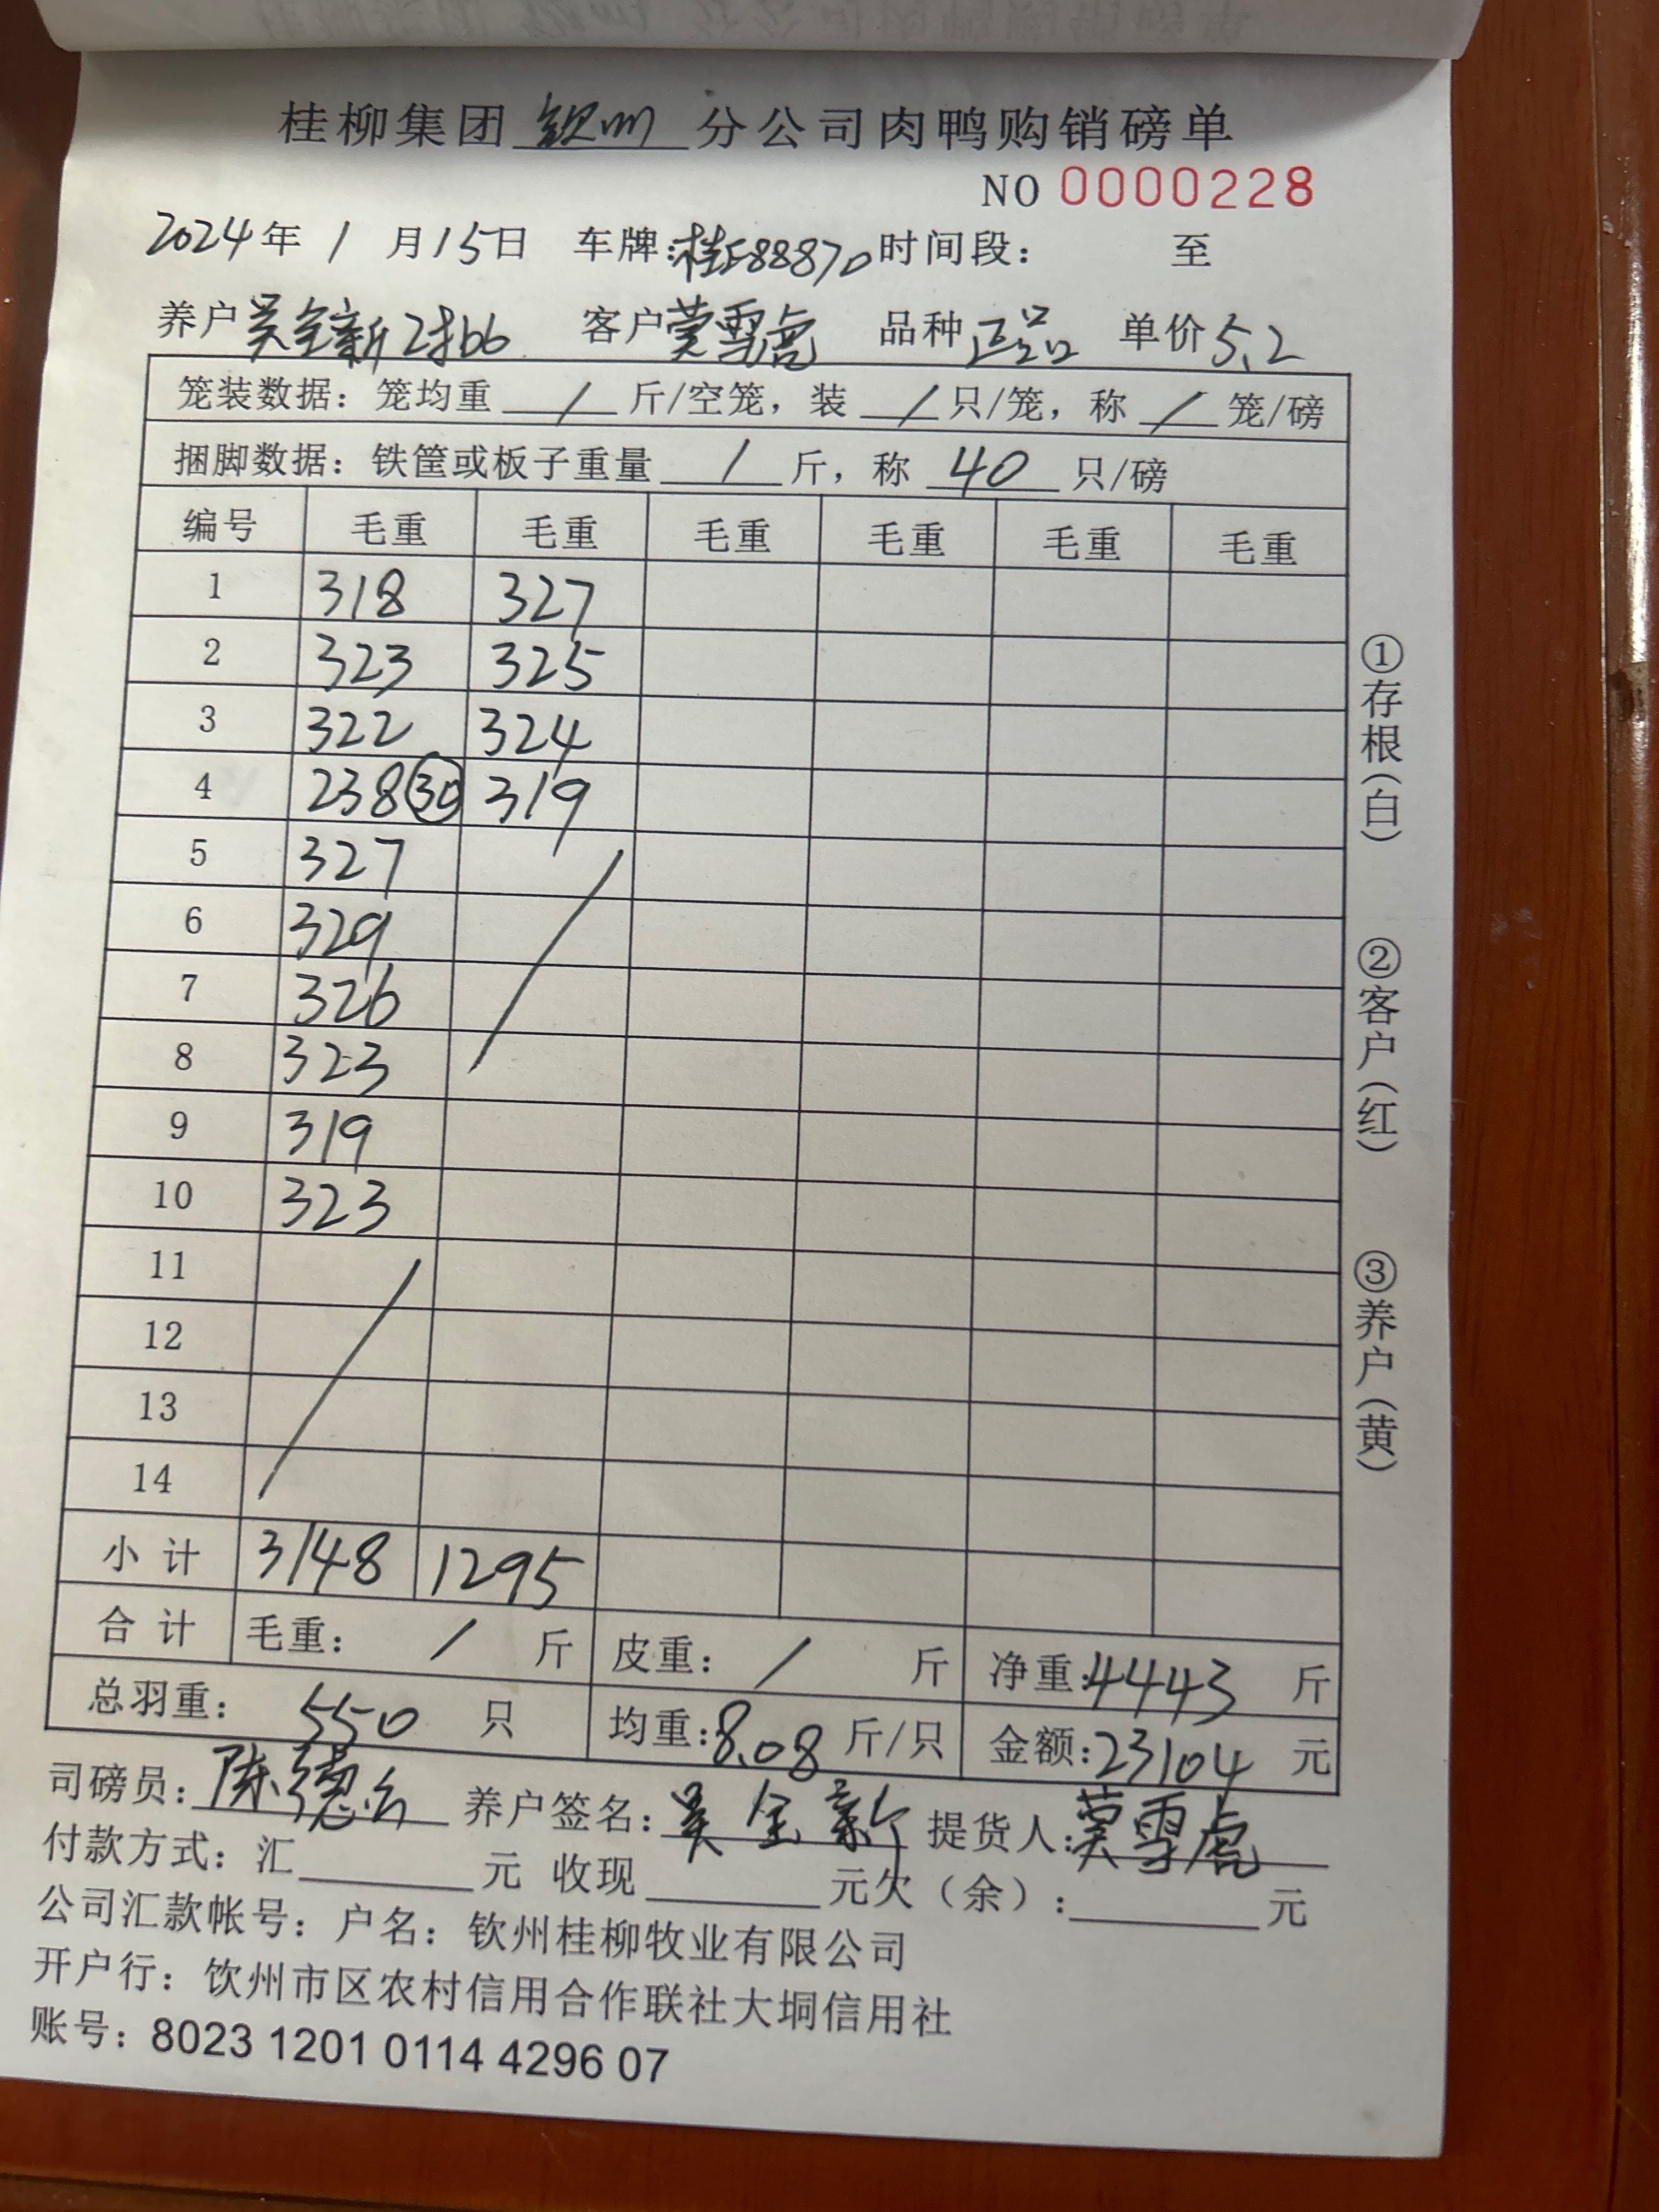 桂柳集团 钦州 分公司肉鸭购销磅单
NO 0000228
2024年 1 月15日 车牌:桂F88870 时间段: 至
养户 吴全新 客户 莫雪虎 品种 正品 单价 5.2
笼装数据: 笼均重 / 斤/空笼, 装 / 只/笼, 称 / 笼/磅
捆脚数据: 铁筐或板子重量 / 斤, 称 40 只/磅
编号 毛重 毛重 毛重 毛重 毛重 毛重
1 318 327
2 323 325
3 322 324
4 238 30 319
5 327
6 329
7 326
8 323
9 319
10 323
11
12
13
14
小计 3148 1295
合计 毛重: / 斤 皮重: / 斤 净重:4443 斤
总羽重: 550 只 均重:8.08 斤/只 金额:23104 元
司磅员: 陈德 养户签名: 吴全新 提货人: 莫雪虎
付款方式: 汇 元 收现 元欠(余): 元
公司汇款帐号: 户名: 钦州桂柳牧业有限公司
开户行: 饮州市区农村信用合作联社大垌信用社
账号: 8023 1201 0114 4296 07
①存根(白)
②客户(红)
③养户(黄)